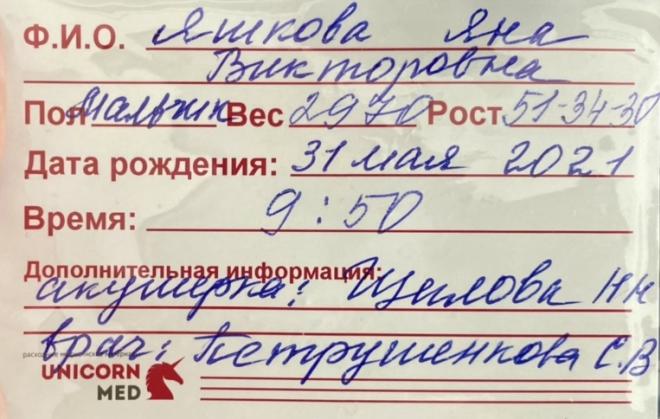 Ф.И.О. Яшкова Яна
Викторовна
Пол Мальчик Вес 2970 Рост 51-34-30
Дата рождения: 31 мая 2021
Время: 9:50
Дополнительная информация:
акушерка: Щилова Н Н
врач: Петрушенкова С.В
UNICORN
MED